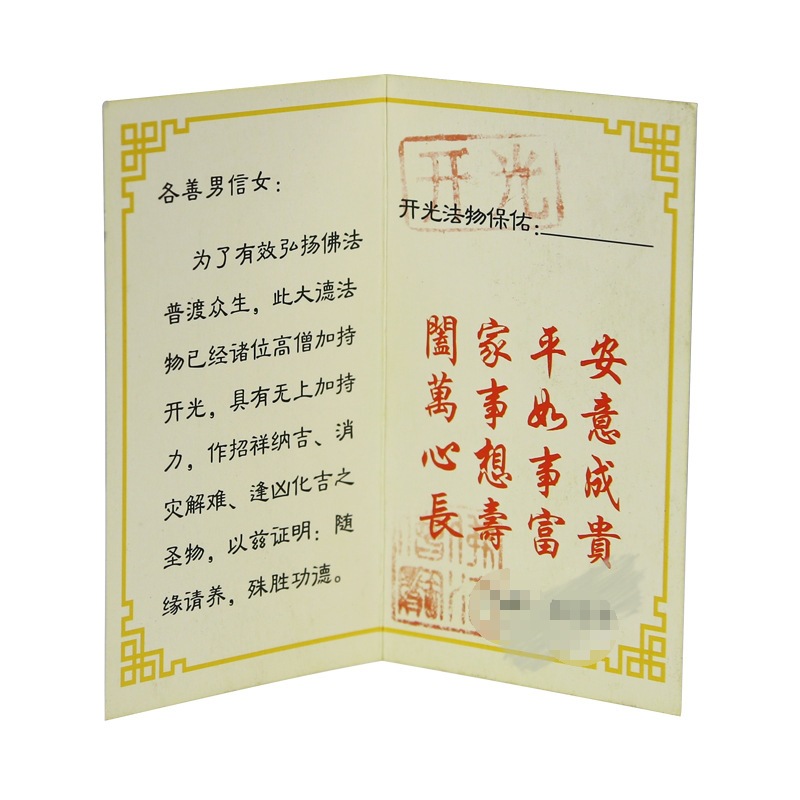 各善男信女：
为了有效弘扬佛法
普渡众生，此大德法
物已经诸位高僧加持
开光，具有无上加持
力，作招祥纳吉、消
灾解难、逢凶化吉之
圣物，以兹证明：随
缘请养，殊胜功德。
开光
开光法物保佑：
闔家平安
萬事如意
心想事成
長壽富貴